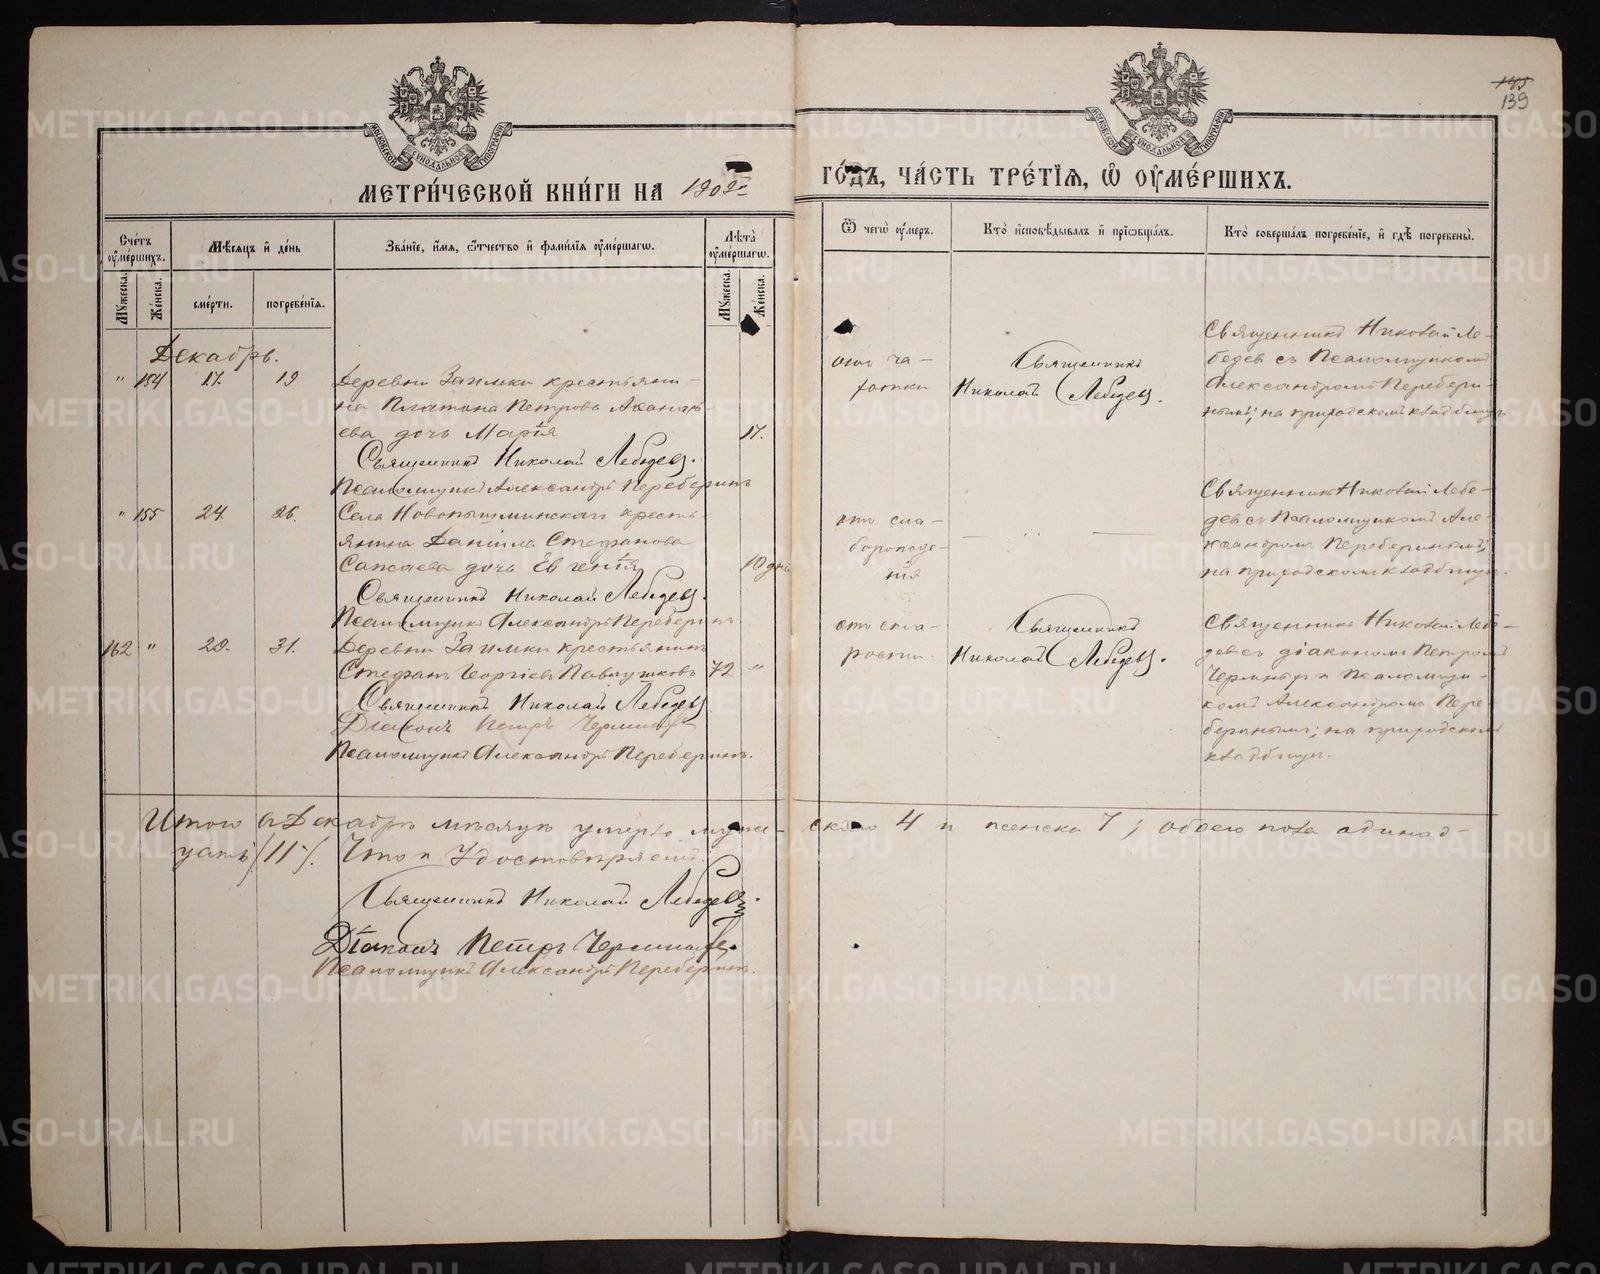 145
139
МОСКОВСКОЙ СѴНОДАЛЬНОЙ ТИПОГРАФІИ
МОСКОВСКОЙ СѴНОДАЛЬНОЙ ТИПОГРАФІИ
МЕТРИ́ЧЕСКОЙ КНИ́ГИ НА 1909й ГО́ДЪ, ЧА́СТЬ ТРЕ́ТІѦ, Ѡ ОУМЕ́РШИХЪ.
Сче́тъ оумéршихъ.
Мꙋжеска.
Же́нска.
Мѣсѧцъ и де́нь
сме́рти.
погребе́нїѧ.
Зва́нїе, и́мѧ, ѻ҆́тчество и фами́лїѧ оумéршагѡ.
Лѣта̀ оумéршагѡ.
Мꙋжеска.
Же́нска.
Ѿ чегѡ̀ оу́меръ.
Кто̀ и҆сповѣ́дывалъ и прїѡбща́лъ.
Кто̀ соверша́лъ погребе́нїе, и гдѣ̀ погребены̀.
Декабрь.
" 154 17. 19
Деревни Заимки крестьяни-
на Платона Петрова Аѳанась-
ева дочь Марія
17.
Священникъ Николай Лебедевъ.
Псаломщикъ Александръ Переберинъ
отъ ча-
хотки
Священникъ
Николай Лебедевъ.
Священникъ Николай Ле-
бедев съ Псаломщикомъ
Александромъ Перебери-
нымъ; на приходскомъ кладбищѣ
" 155 24. 26.
Села Новопышминскаго кресть-
янина Даніила Стефанова
Сапсаева дочь Евгенія
10 дн.
Священникъ Николай Лебедевъ.
Псаломщикъ Александръ Переберинъ
отъ сла-
бороподе-
нія
— " —
Священникъ Николай Лебе-
девъ съ Псаломщикомъ Але-
ксандромъ Переберинымъ;
на приходскомъ кладбищѣ.
162 " 29. 31.
Деревни Заимки крестьянинъ
Стефанъ Георгіевъ Павлушковъ
72 "
Священникъ Николай Лебедевъ
Діаконъ Петръ
Псаломщикъ Александръ Переберинъ.
отъ ста-
рости.
Священникъ
Николай Лебедевъ.
Священникъ Николай Лебе-
девъ съ діакономъ Петромъ
и Псаломщи-
комъ Александромъ Пере-
беринымъ; на приходскомъ
кладбищѣ.
Итого въ Декабрѣ мѣсяцѣ умерло муже-ска 4 и женска 7; обоего пола одинад-
цать /11/. Что и удостовѣряемъ.
Священникъ Николай Лебедевъ.
Діаконъ Петръ
Псаломщикъ Александръ Переберинъ.
METRIKI.GASO-URAL.RU